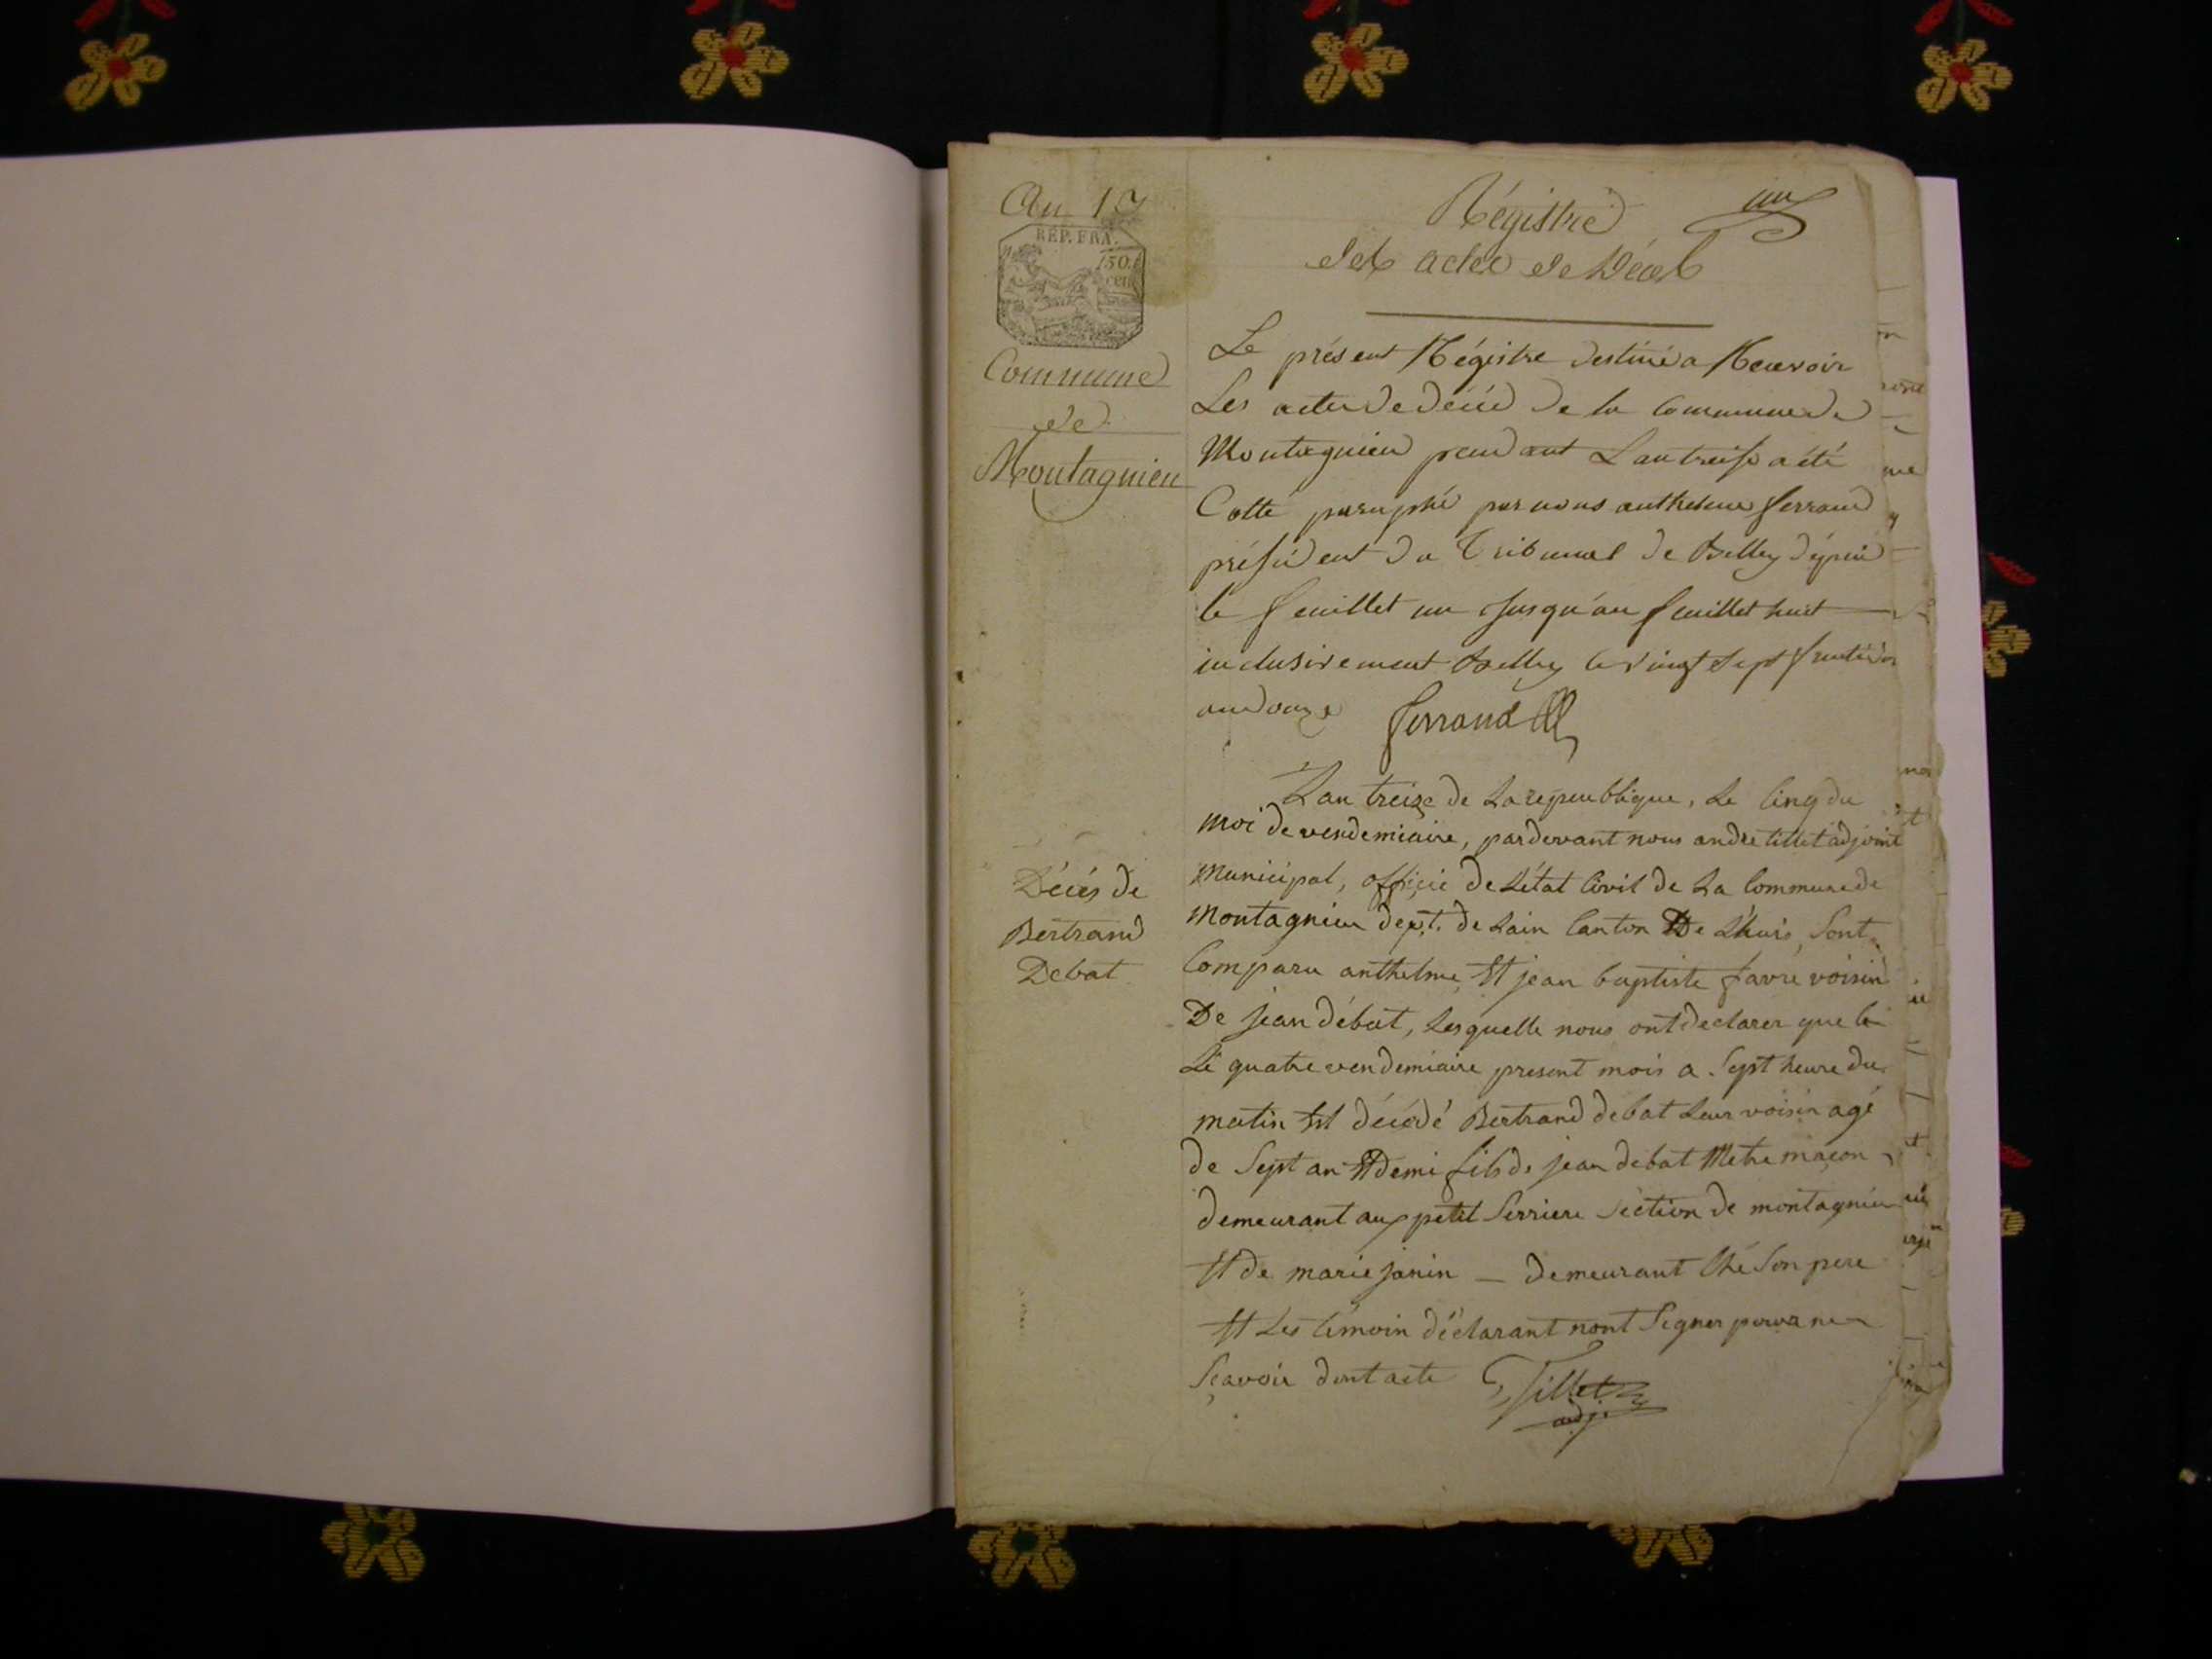 An 13
RÉP. FRA.
50
cen
Commune
de
Montagnieu
Régistre
un
des actes de Décès
Le présent Régistre destiné a Recevoir
Les actes de décès de la Commune de
Montagnieu pendant Lan treise a été
Cotté paraphé par nous anthelme ferrand
président du Tribunal de Belley dépuis
le feuillet un Jusqu'au feuillet huit
inclusivement Belley le vingt Sept fructidor
an douze
ferrand
Lan treize de La republique, Le Cinq du
moi de vendemiaire, pardevant nous andre tillet adjoint
Municipal, officie de L'état Civil de La Commune de
Décés de
Bertrand
Debat
Montagnieu dept. de Lain Canton De L'huis, Sont
Comparu anthelme Et jean baptiste favre voisin
De jean débat, Lesquelle nous ont declarer que le
Le quatre vendemiaire present mois a Sept heure du
matin Est décédé Bertrand debat Leur voisin agé
de Sept an Et demi fils de jean debat Metre maçon
demeurant aux petit Serriere Séction de montagnieu
Et de marie janin — demeurant Ché Son pere
Et Les témoin déclarant nont Signer pour ne
Sçavoir dont acte
Tillet
adj.